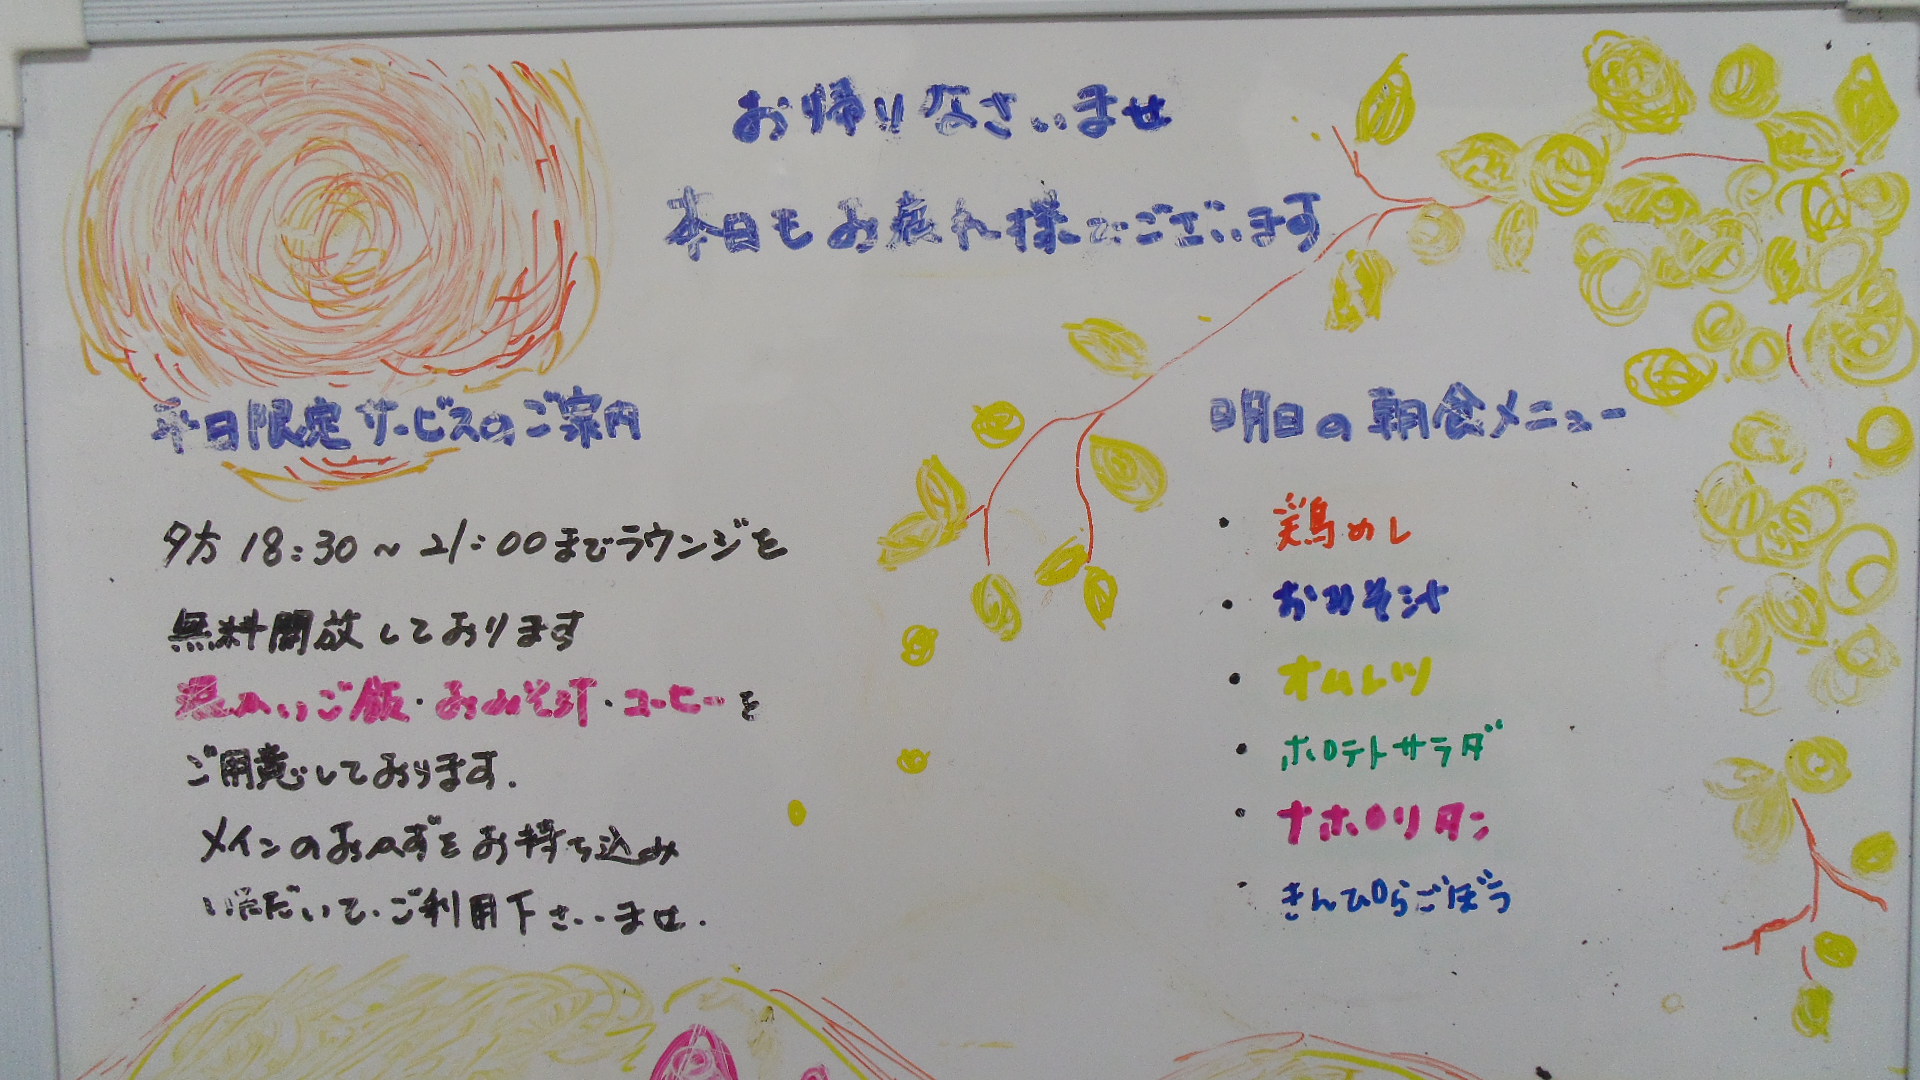 お帰りなさいませ
本日もお疲れ様でございます
平日限定サービスのご案内
夕方18:30～21:00までラウンジを
無料開放しております
温かいご飯・おみそ汁・コーヒーを
ご用意しております.
メインのおかずをお持ち込み
いただいて、ご利用下さいませ.
明日の朝食メニュー
・鶏めし
・おみそ汁
・オムレツ
・ポテトサラダ
・ナポリタン
・きんぴらごぼう